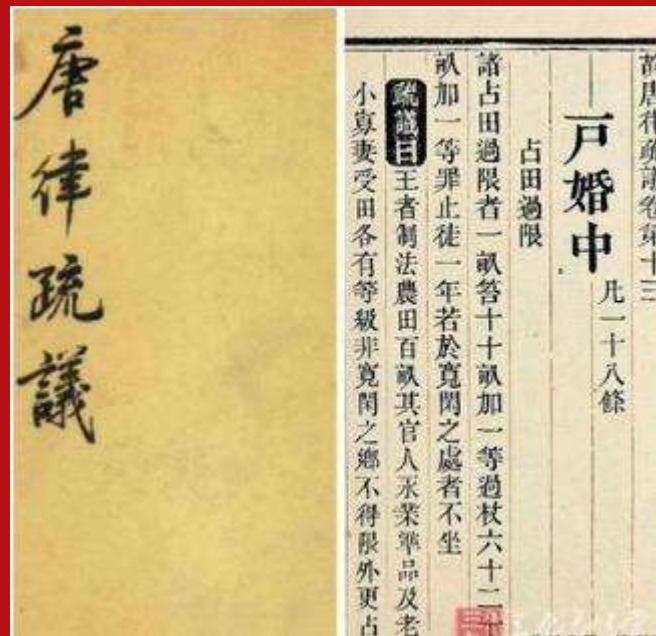 唐律疏議
故唐律疏議卷第十三
戶婚中 凡一十八條
占田過限
諸占田過限者一畝笞十十畝加一等過杖六十二十
畝加一等罪止徒一年若於寬閑之處者不坐
疏議曰王者制法農田百畝其官人永業準品及老
小寡妻受田各有等級非寬閑之鄉不得限外更占